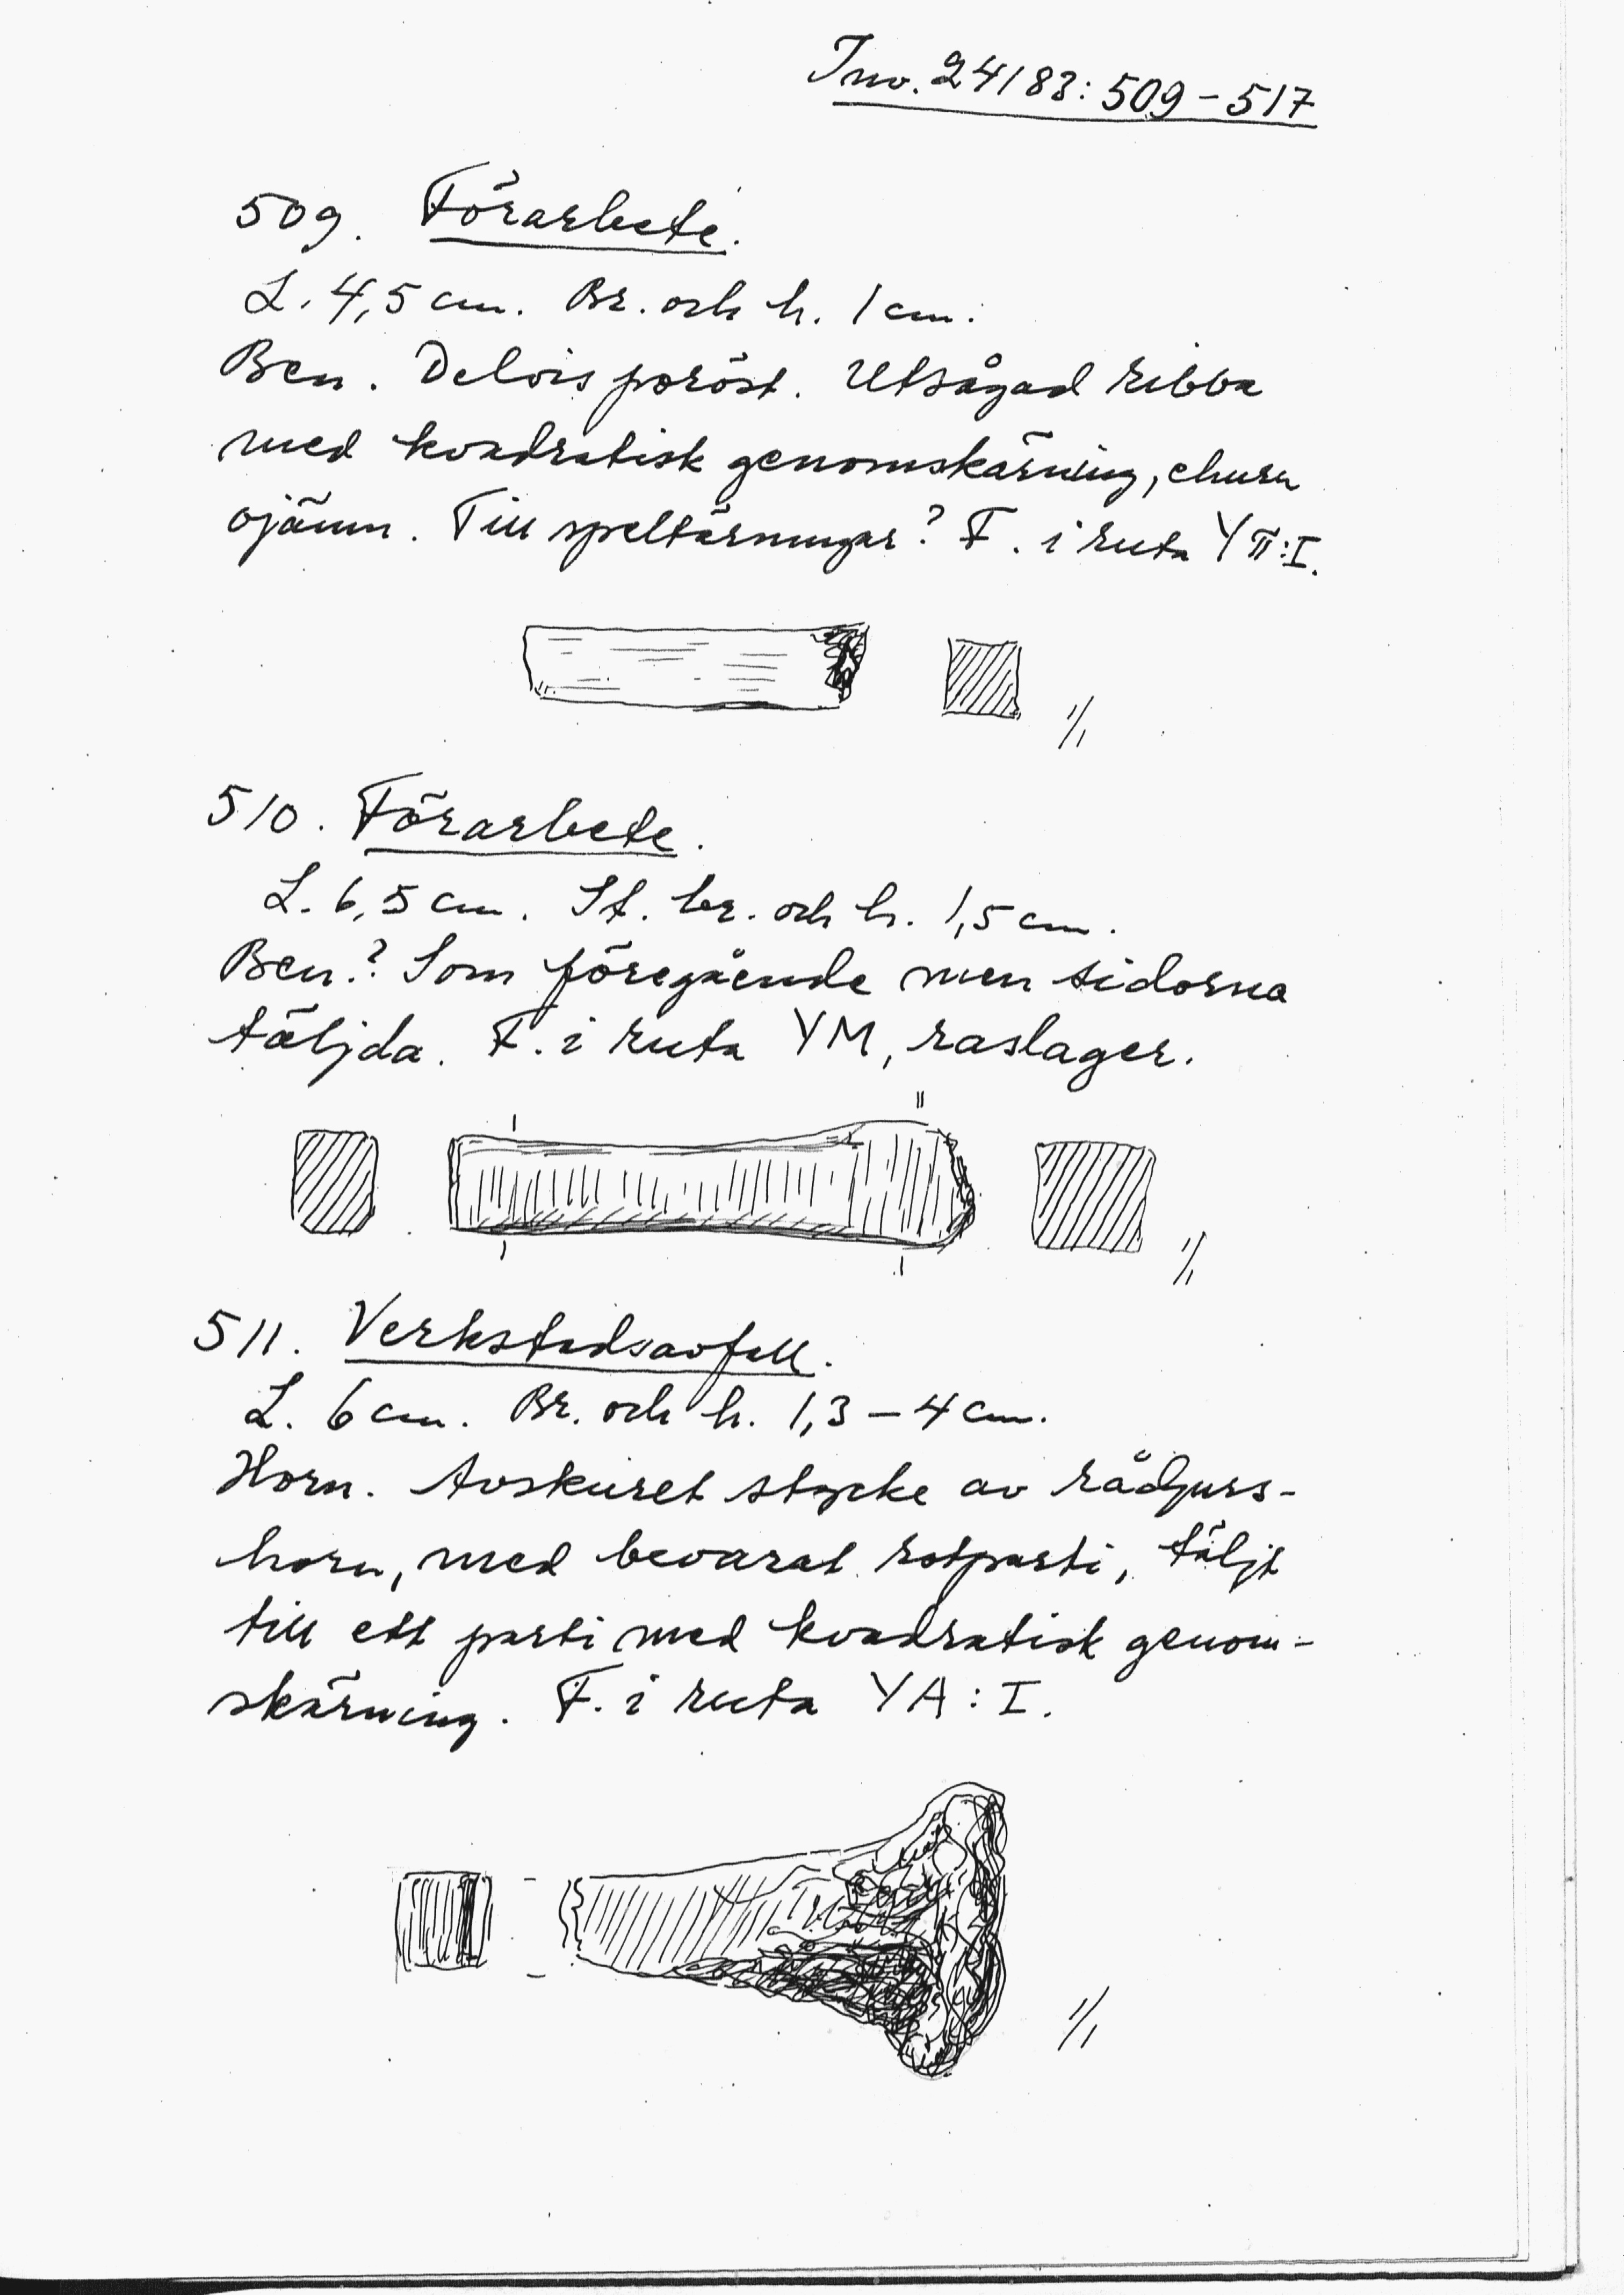 Inv. 24183: 509-517
509. Förarbete.
L. 4,5 cm. Br. och h. 1 cm.
Ben. Delvis poröst. Utsågad ribba
med kvadratisk genomskärning, ehuru
ojämn. Till speltärningar? F. i ruta YΠ:I.
1/1
510. Förarbete.
L. 6,5 cm. St. br. och h. 1,5 cm.
Ben? Som föregående men sidorna
täljda. F. i ruta YM, raslager.
1/1
511. Verkstadsavfall.
L. 6 cm. Br. och h. 1,3-4 cm.
Horn. Avskuret stycke av rådjurs-
horn, med bevarat rotparti, täljt
till ett parti med kvadratisk genom-
skärning. F. i ruta YA: I.
1/1